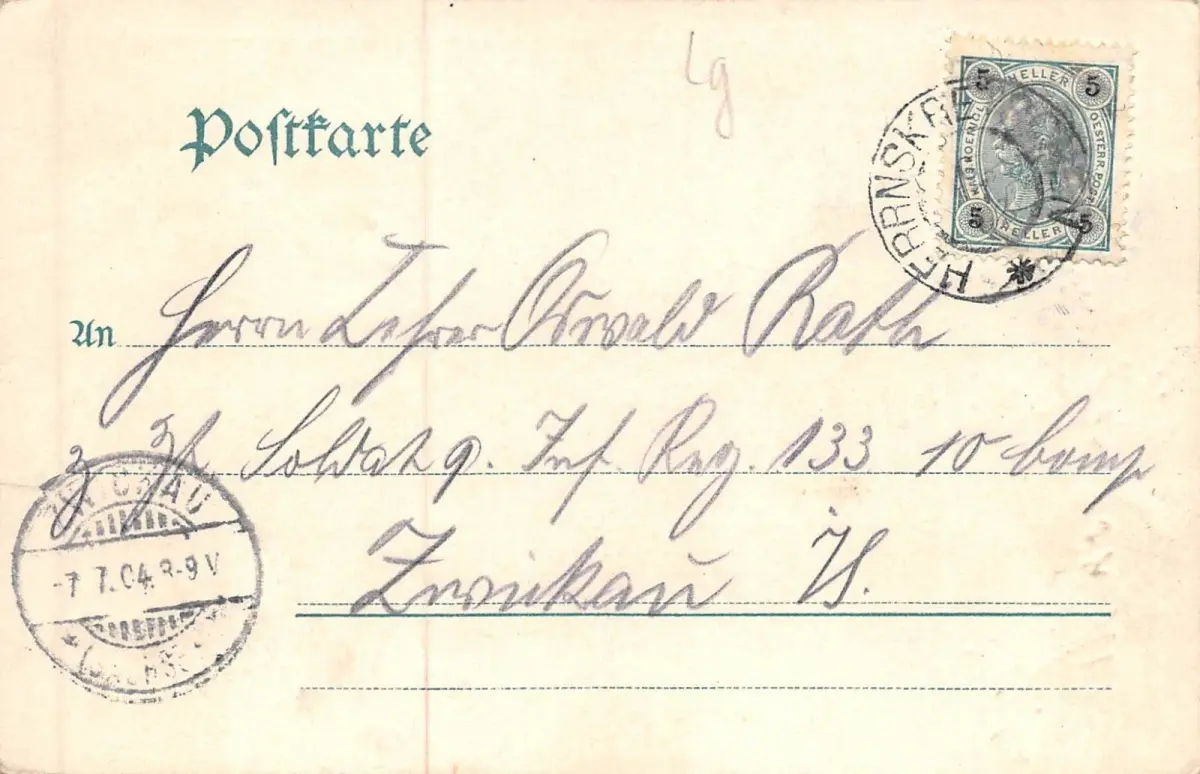 lg
Postkarte
5 HELLER 5
OESTERR. POST
5 HELLER 5
HERRNSKRE
An Herrn Lehrer Oswald Rath
z. Zt. Soldat q. Inf. Reg. 133 10 Comp
Zwickau i/S.
ZWICKAU
-7 7.04. 8-9 V